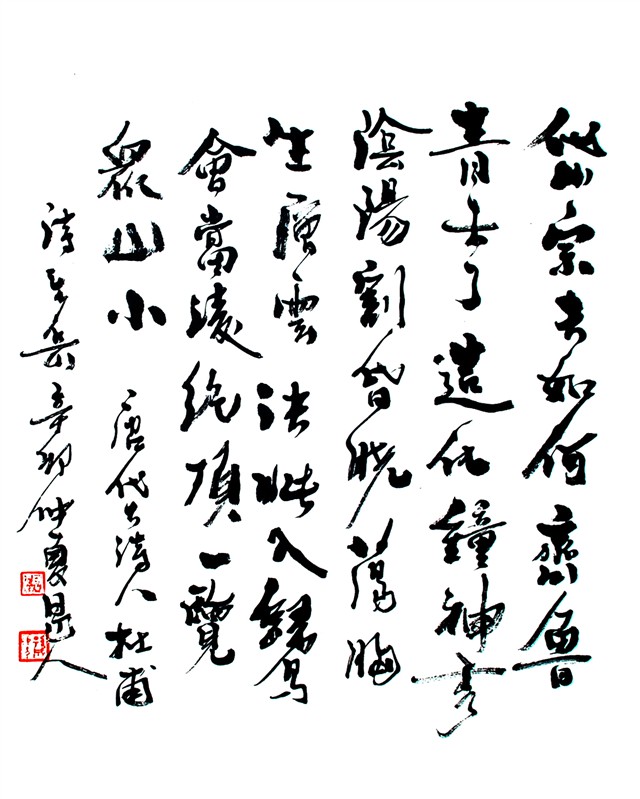 岱宗夫如何齊魯
青未了造化鐘神秀
陰陽割昏曉蕩胸
生層雲決眥入歸鳥
會當凌絕頂一覽
眾山小 唐代大詩人杜甫
詩望岳辛卯仲夏人